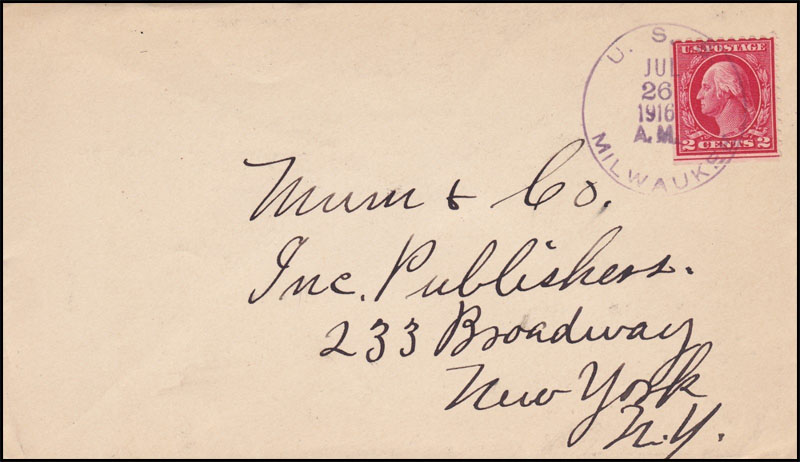 U. S.
JUL
26
1916
A.M.
MILWAUK
U.S. POSTAGE
2 CENTS 2
Mum & Co.
Inc. Publishers.
233 Broadway
New York
N.Y.